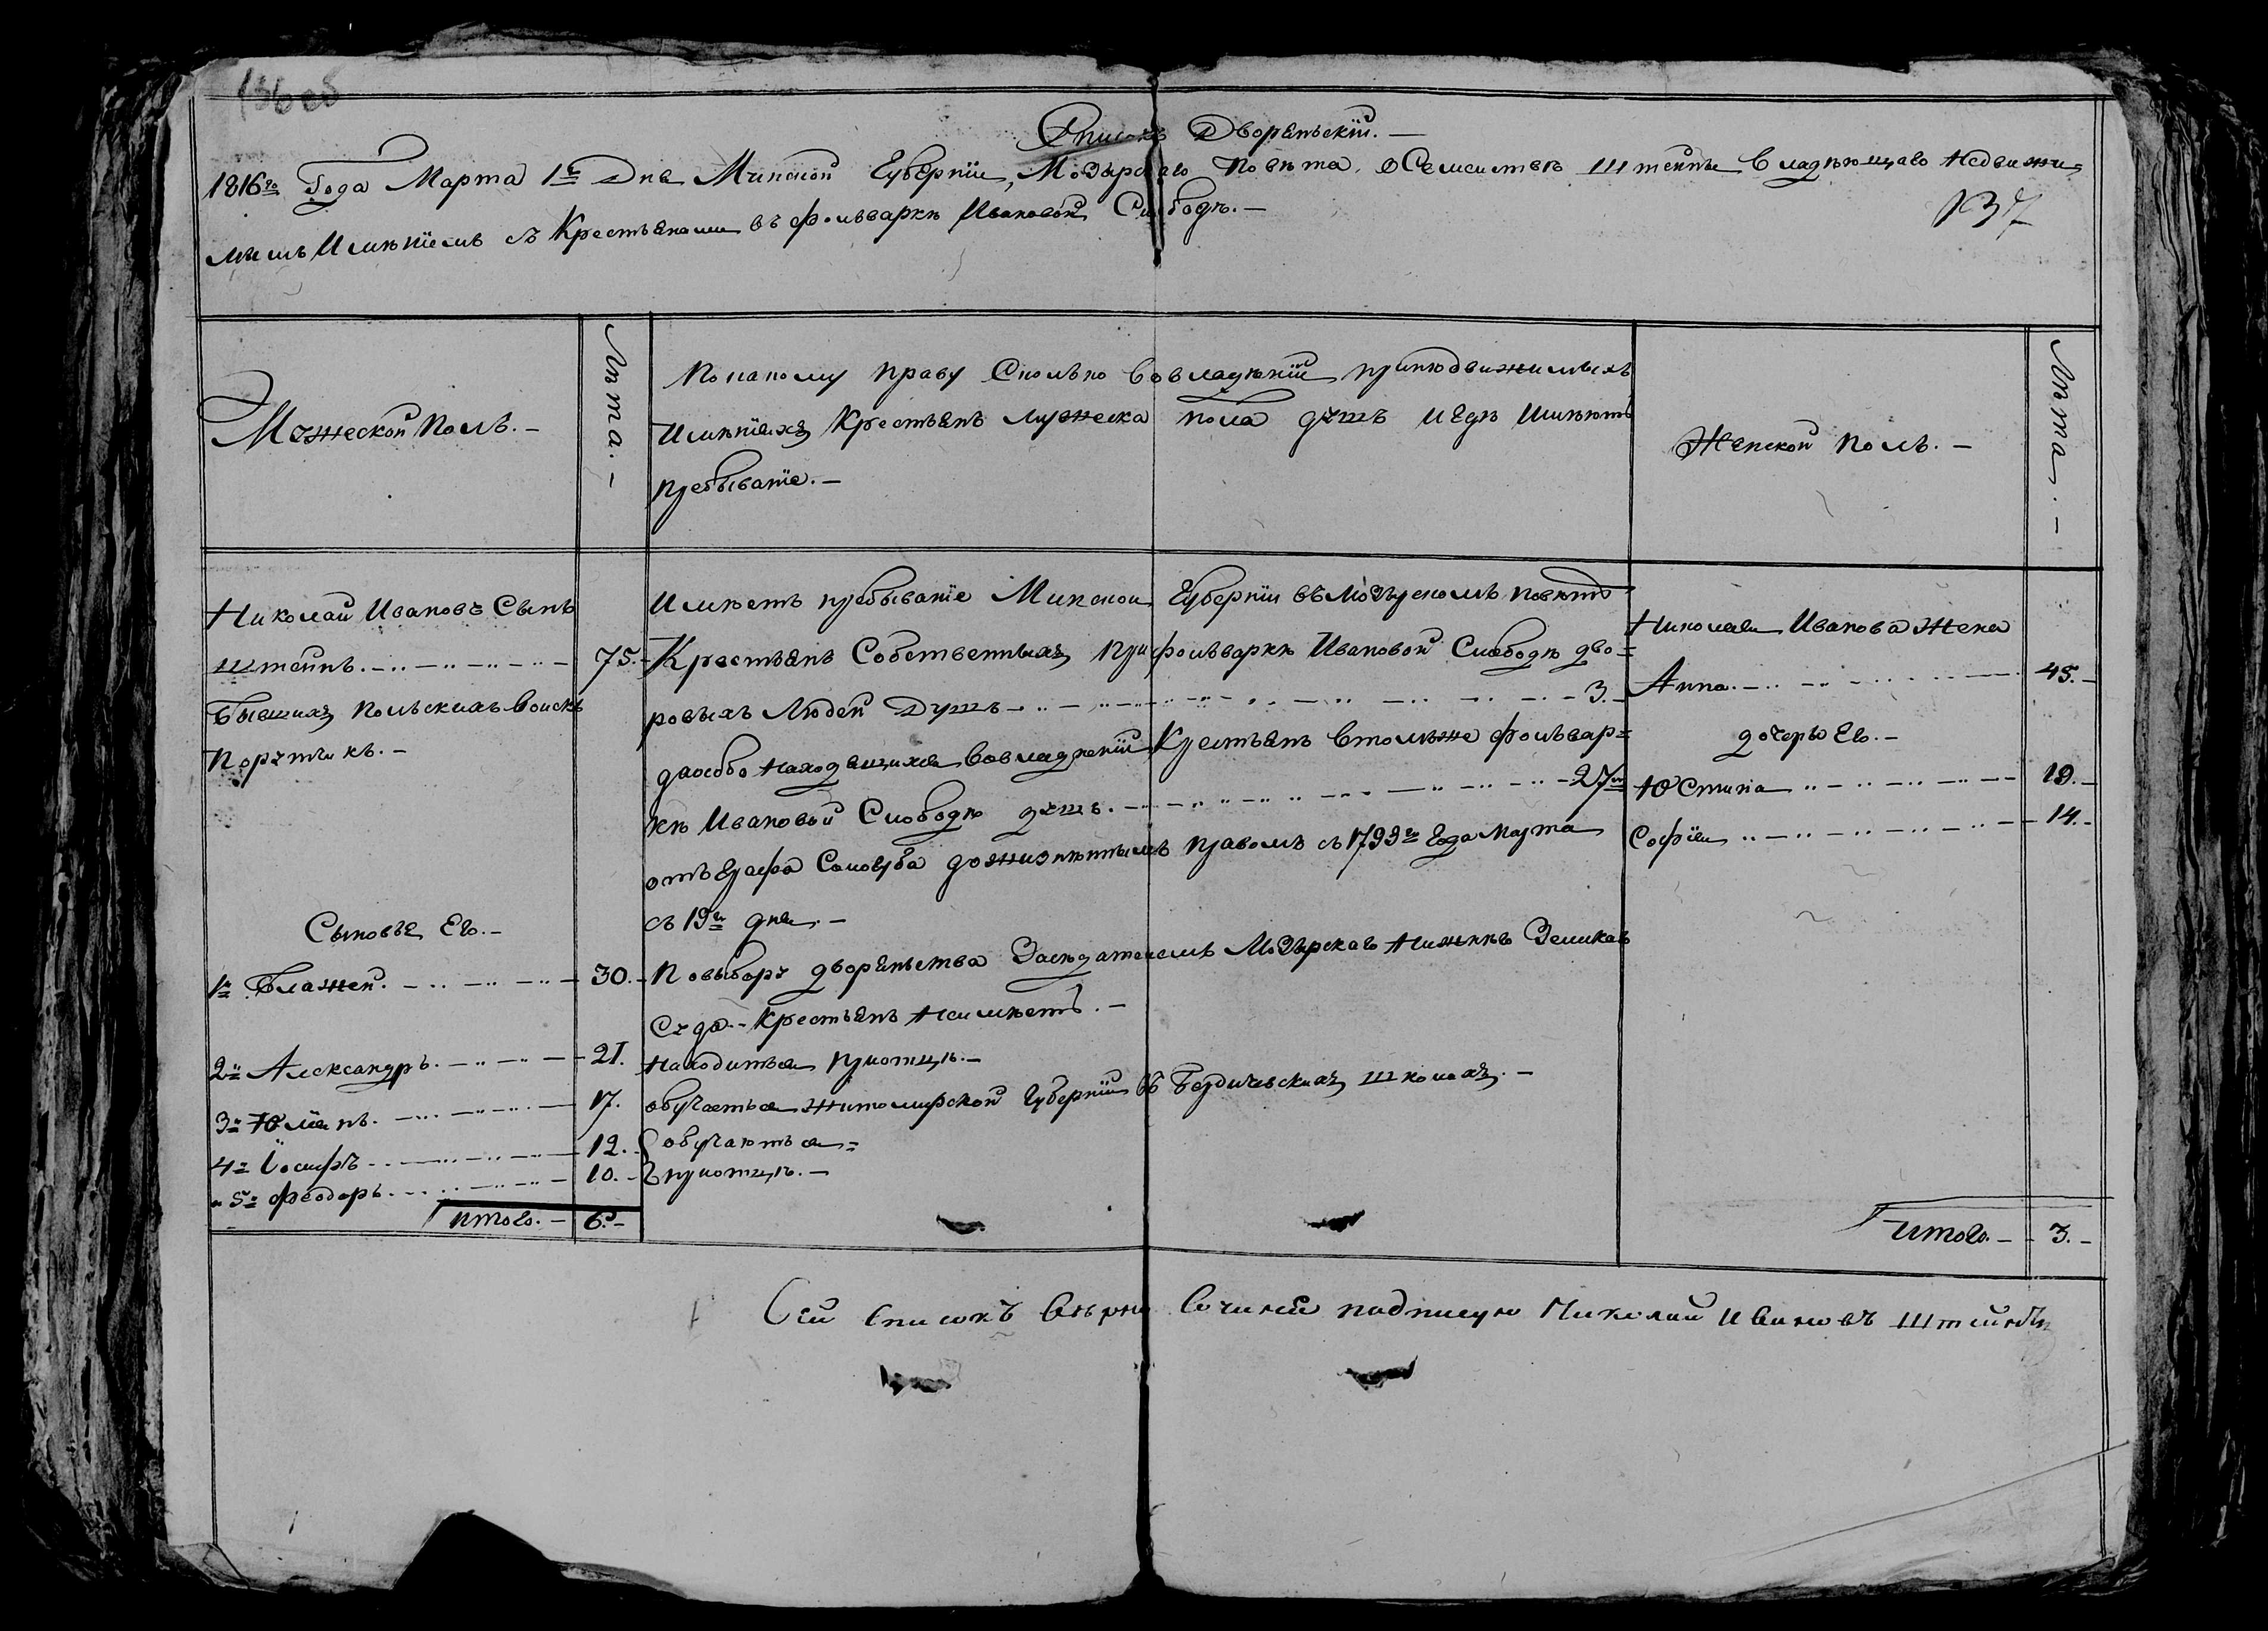 136 об
Списокъ Дворянскїй. —
1816го Года Марта 1го Дня Минской Губернїи, Мозырского Повета, о Семействе Штейна Владеющаго Недвижи=
137
мымъ Именїемъ съ Крестьянами въ фольварке Ивановой Слободе. —
Мужеской Полъ. —
Лѣта. —
По какому праву Сколько во владѣнїи при недвижимыхъ
Имѣнїяхъ Крестьянъ мужеска пола душъ и где Имѣютъ
пребыванїе. —
Женской полъ. —
Лѣта. —
Николай Ивановъ Сынъ
Штейнъ. 75. —
Бывшихъ Польскихъ Войскъ
Поручикъ. —
Имѣетъ пребыванїе Минской Губернїи въ Мозырскомъ повѣтѣ
Крестьянъ Собственныхъ при фольварке Ивановой Слободе дво=
ровыхъ Людей Душъ 3. —
да особо находящихся во владѣнїи Крестьянъ в томъ же фольвар=
кѣ Ивановой Слободѣ душъ. 27м
отъ Графа Сологуба дожизненнымъ правомъ съ 1793го Года Марта
съ 19го дня. —
Николая Иванова Жена
Анна. 45. —
дочеръ Его. —
Юстина 19. —
Софїя 14. —
Сыновья Его. —
1й Блажей. 30. —
По выбору дворянства Заседателемъ Мозырскаго Нижняго Земскаго
Суда. — Крестьянъ Не имѣетъ. —
2й Александръ. 21.
Находится при отцѣ. —
3й Юлїянъ. 17.
обучается Житомирской Губернїи въ Бердичевскихъ школахъ. —
4й Іосифъ 12.
обучаются =
и 5й Феодоръ. 10. —
при отцѣ. —
итого. — 6. —
Итого. — 3. —
Сей списокъ верно сочиненъ подписую Николай Ивановъ Штейнъ